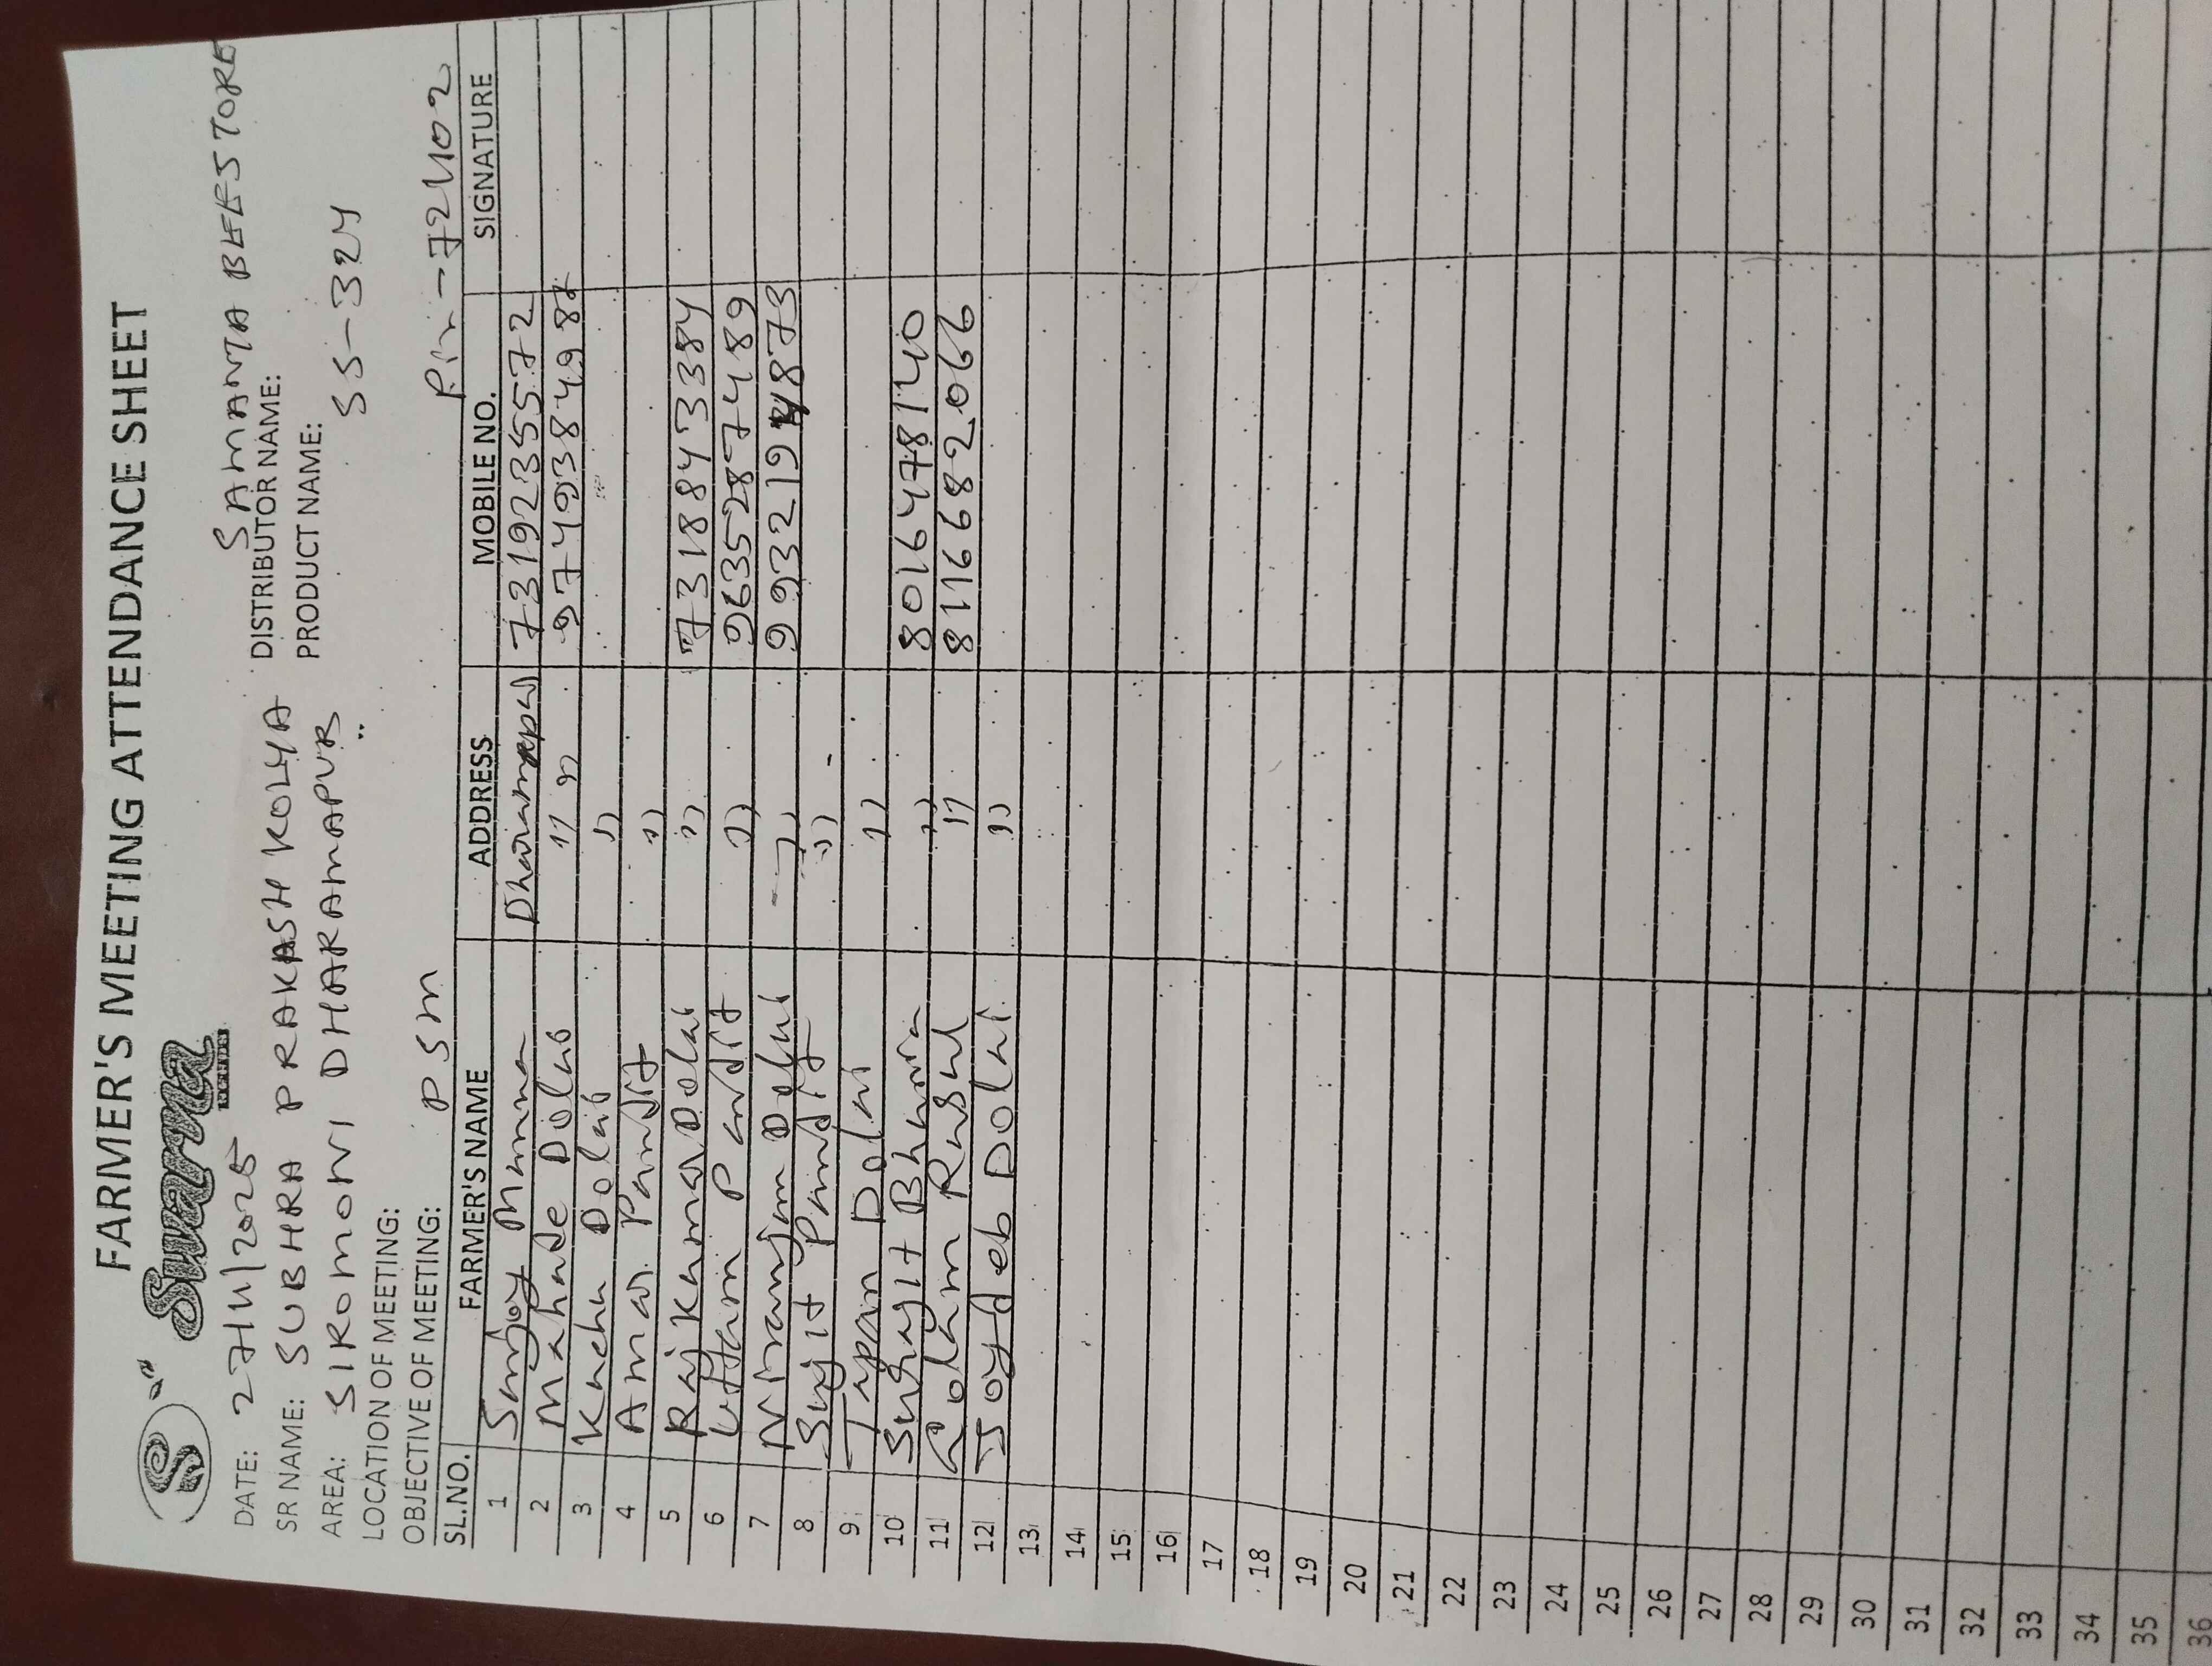 FARMER'S MEETING ATTENDANCE SHEET
S Suvarna
DATE: 27/11/2025 DISTRIBUTOR NAME: SAMANTA BEEJ STORE
SR NAME: SUBHRA PRAKASH KOLYA PRODUCT NAME: SS-324
AREA: SIROMONI DHARAMAPUR
LOCATION OF MEETING:
OBJECTIVE OF MEETING: PSM Pin-721102
SL.NO. FARMER'S NAME ADDRESS MOBILE NO. SIGNATURE
1 Sanjoy Manna Dharampur 7319235572
2 Mahade Dolai 11 9749384998
3 Kachu Dolai 11
4 Amar Pandit 11
5 Rajkumar Dolai 11 73188473384
6 Uttam Pandit 11 9635287489
7 Niranjan Dolui 11 9932194873
8 Surjit Pandit 11
9 Tapan Dolai 11
10 Surhajit Bhunia 11 8016478140
11 Golam Rasul 11 8116682066
12 Joydeb Dolai 11
13
14
15
16
17
18
19
20
21
22
23
24
25
26
27
28
29
30
31
32
33
34
35
36